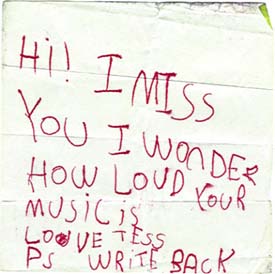 Hi! I MISS
YOU I WONDER
HOW LOUD YOUR
MUSIC iS
LOOVE TESS
PS WRITE BACK